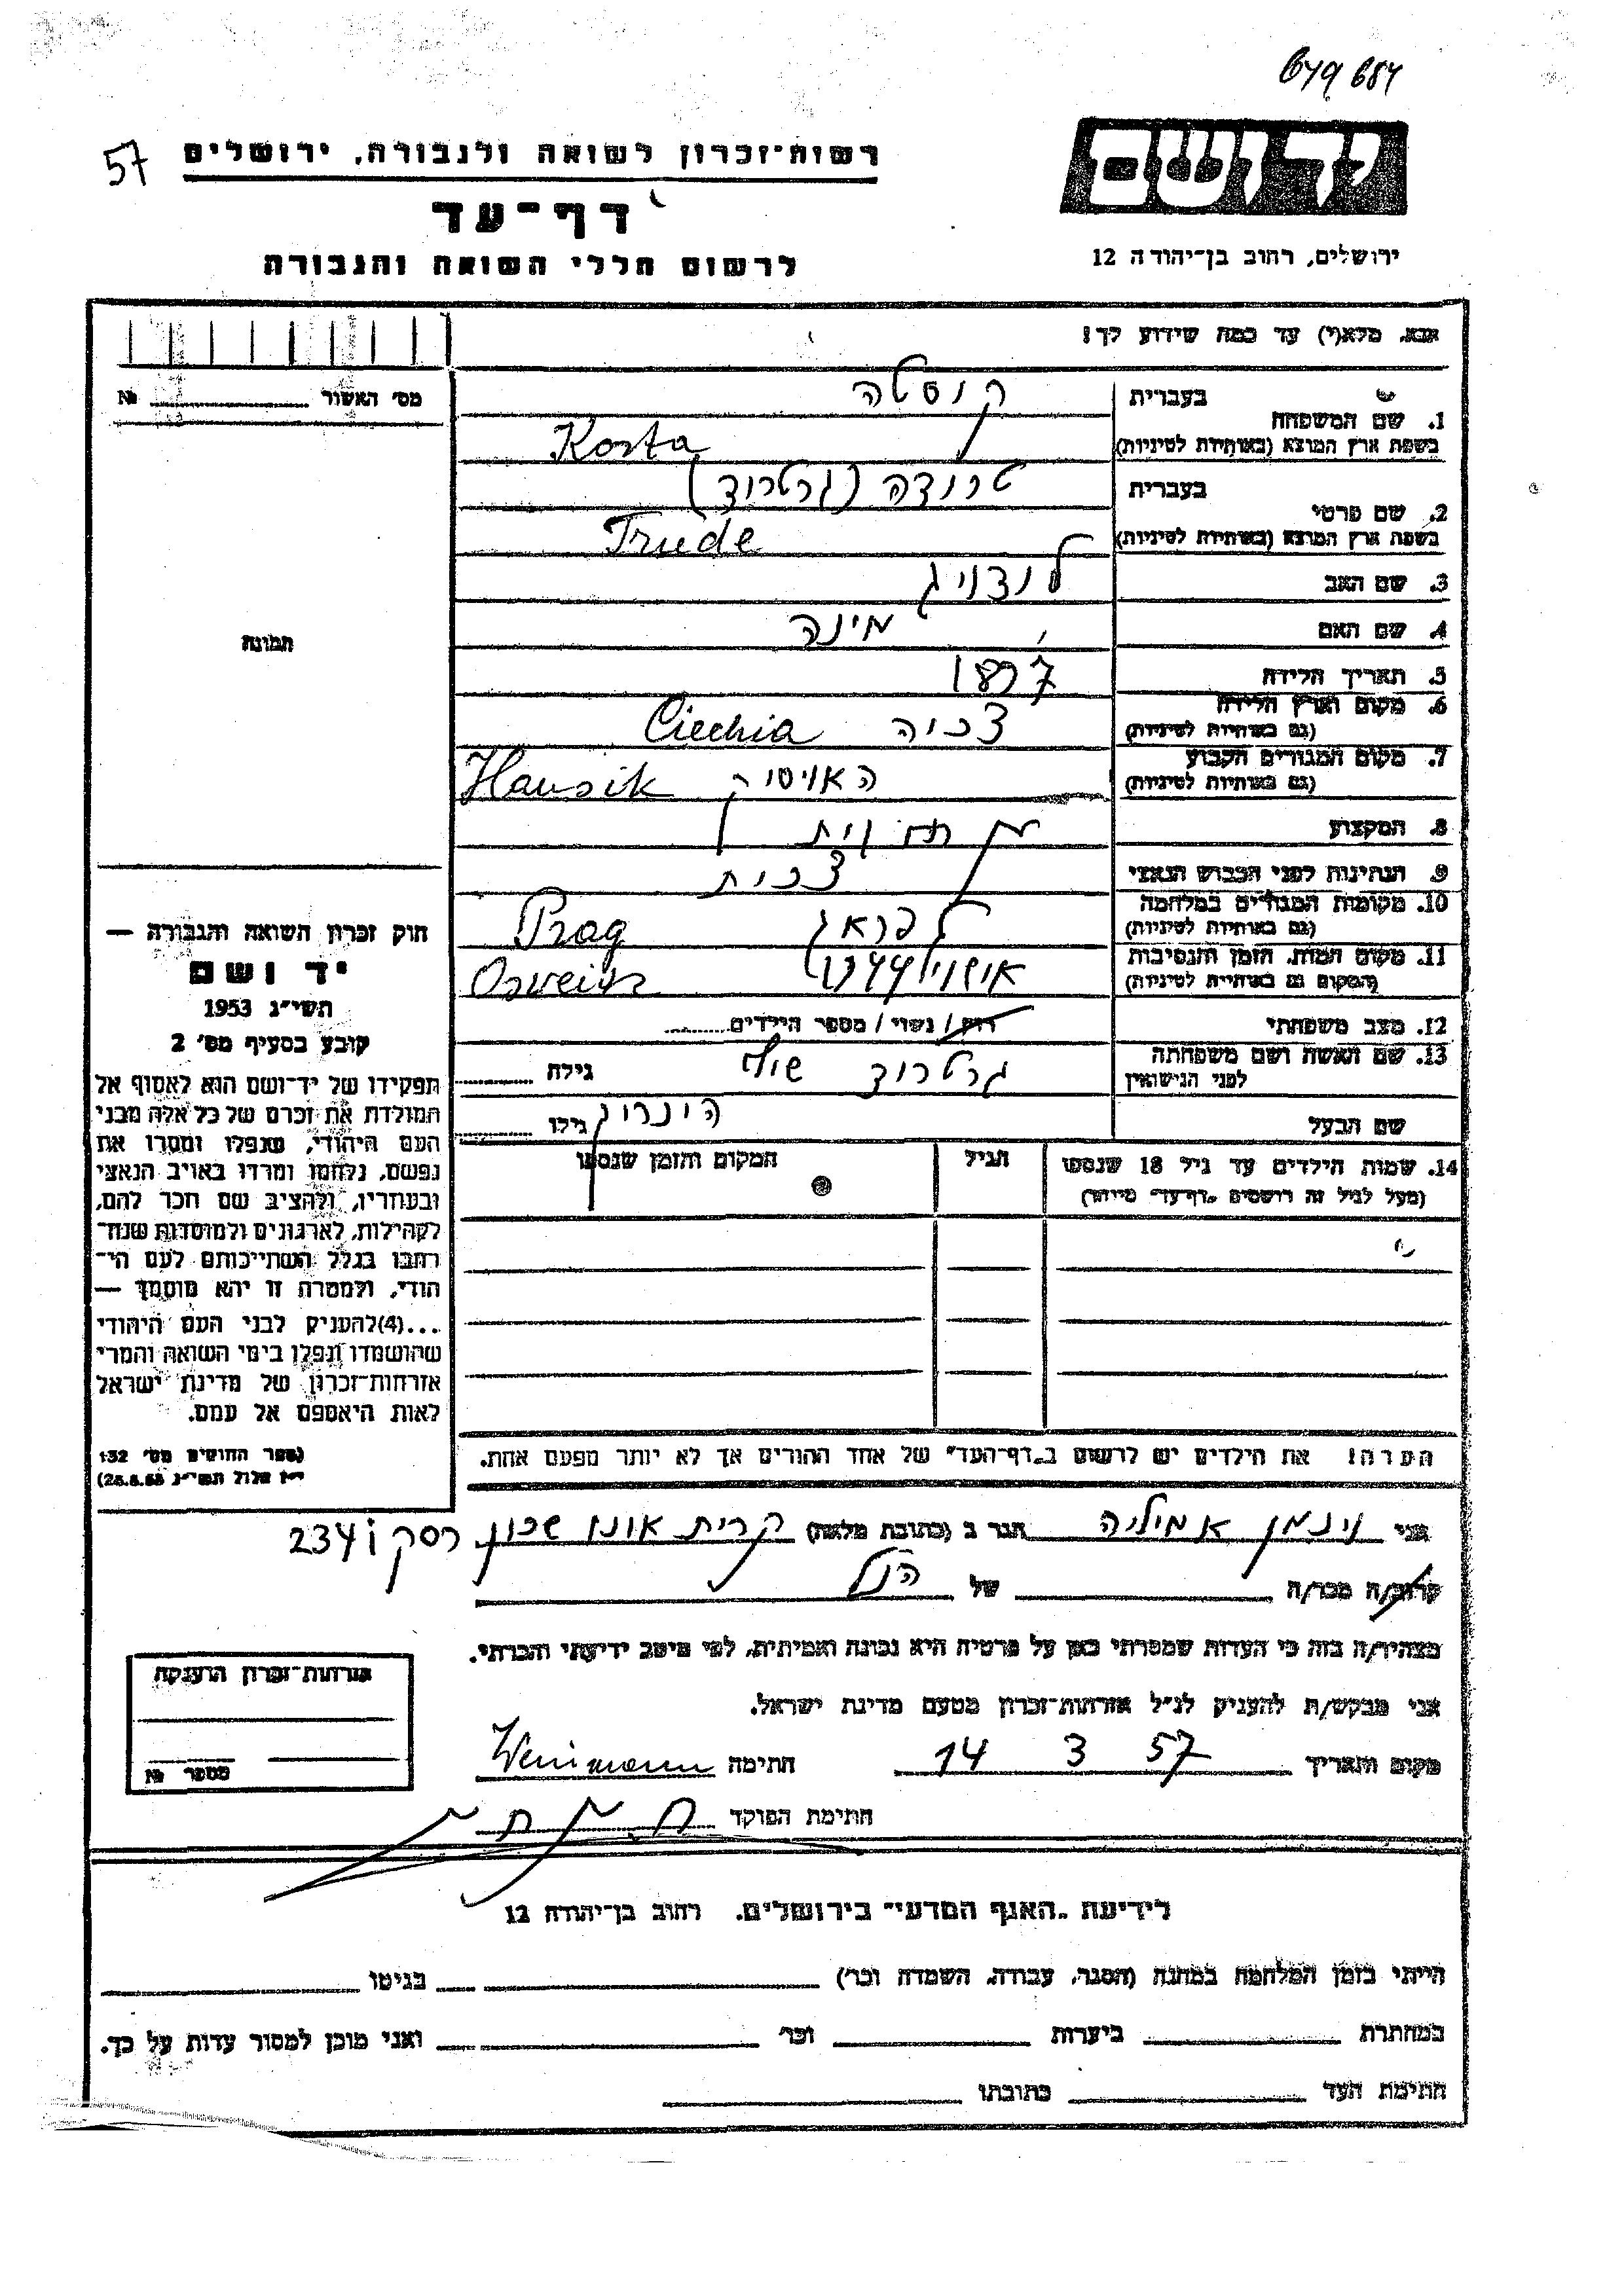 679 684
57
רשות־זכרון לשואה ולגבורה, ירושלים
דף־עד
לרשום חללי השואה והגבורה
יד ושם
ירושלים, רחוב בן־יהודה 12
אנא, מלא(י) עד כמה שידוע לך!
מס׳ האשור № 
תמונה
1. שם המשפחה
בעברית קוסטה
בשפת ארץ המוצא (באותיות לטיניות) Kosta
2. שם פרטי
בעברית טרודה (גרטרוד)
בשפת ארץ המוצא (באותיות לטיניות) Trude
3. שם האב לודויג
4. שם האם מינה
5. תאריך הלידה 1897
6. מקום וארץ הלידה
(גם באותיות לטיניות) צכיה Ciechia
7. מקום המגורים הקבוע
(גם באותיות לטיניות) האוסיק Hausik
8. המקצוע
9. הנתינות לפני הכבוש הנאצי צכית
10. מקומות המגורים במלחמה
(גם באותיות לטיניות) פראג Prag
11. מקום המות, הזמן והנסיבות
(המקום גם באותיות לטיניות) 1944 Osweitz
12. מצב משפחתי רווק / נשוי / מספר הילדים
13. שם האשה ושם משפחתה
לפני הנישואין גרטרוד גילה
שם הבעל היינריך גילו
14. שמות הילדים עד גיל 18 שנספו
(מעל לגיל זה רושמים „דף־עד" מיוחד)
הגיל
המקום והזמן שנספו
חוק זכרון השואה והגבורה —
יד ושם
תשי״ג 1953
קובע בסעיף מס׳ 2
תפקידו של יד־ושם הוא לאסוף אל
המולדת את זכרם של כל אלה מבני
העם היהודי, שנפלו ומסרו את
נפשם, נלחמו ומרדו באויב הנאצי
ובעוזריו, ולהציב שם וזכר להם,
לקהילות, לארגונים ולמוסדות שנח־
רבו בגלל השתייכותם לעם הי־
הודי, ולמטרה זו יהא מוסמך —
...(4)להעניק לבני העם היהודי
שהושמדו ונפלו בימי השואה והמרי
אזרחות־זכרון של מדינת ישראל
לאות היאספם אל עמם.
(ספר החוקים מס׳ 132
י״ז אלול תשי״ג 28.8.53)
הערה! את הילדים יש לרשום ב„דף־העד" של אחד ההורים אך לא יותר מפעם אחת.
אני וינמן אמיליה הגר ב (כתובת מלאה) קרית אונו שכון רסקו 234
קרוב/ה מכר/ה של הנ״ל
מצהיר/ה בזה כי העדות שמסרתי כאן על פרטיה היא נכונה ואמיתית, לפי מיטב ידיעתי והכרתי.
אני מבקש/ת להעניק לנ״ל אזרחות־זכרון מטעם מדינת ישראל.
מקום ותאריך 14 3 57 חתימה Weinmann
חתימת הפוקד
אזרחות־זכרון הוענקה
מספר №
לידיעת „האגף המדעי" בירושלים, רחוב בן־יהודה 12
הייתי בזמן המלחמה במחנה (הסגר, עבודה, השמדה וכו׳) בגיטו
במחתרת ביערות וכו׳ ואני מוכן למסור עדות על כך.
חתימת העד כתובתו